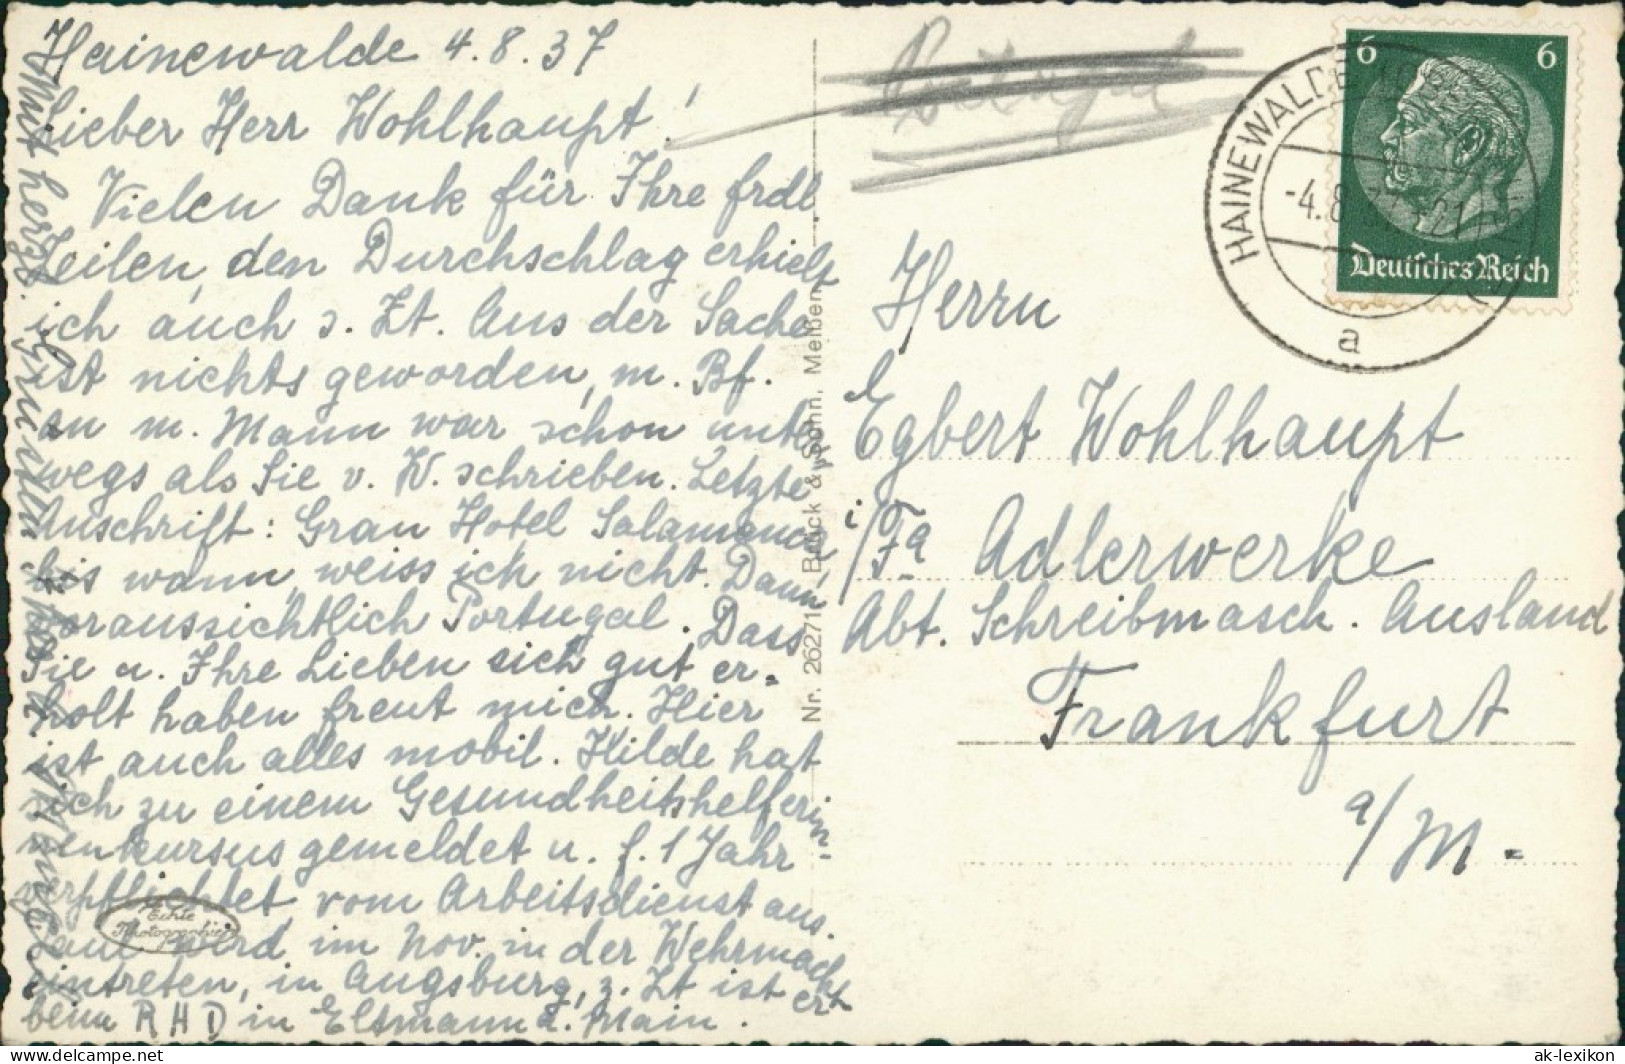 Hainewalde 4.8.37
Lieber Herr Wohlhaupt!
Vielen Dank für Ihre frdl
Zeilen, den Durchschlag erhielt
ich auch s. Zt. Aus der Sache
ist nichts geworden, m. Bf.
an m. Mann war schon unter
wegs als Sie v. W. schrieben. Letzte
Anschrift: Gran Hotel Salamanca
bis wann, weiss ich nicht. Dann
voraussichtlich Portugal. Dass
Sie u. Ihre Lieben sich gut er-
holt haben freut mich. Hier
ist auch alles mobil. Hilde hat
sich zu einem Gesundheitshelferin-
nenkursus gemeldet u. f. 1 Jahr
verpflichtet, vom Arbeitsdienst aus.
wird im Nov. in der Wehrmacht
eintreten, in Augsburg, z. Zt ist er
beim RHD in Eltmann a. Main.
Mit herzl.
Echte
Photographie
Nr. 2627/1 Brück & Sohn, Meißen.
Portugal
6 6
Deutsches Reich
HAINEWALDE
-4.8
21
a
Herrn
Egbert Wohlhaupt
i/Fa Adlerwerke
Abt. Schreibmasch. Ausland
Frankfurt
a/M-
https://www.delcampe.net
ak-lexikon